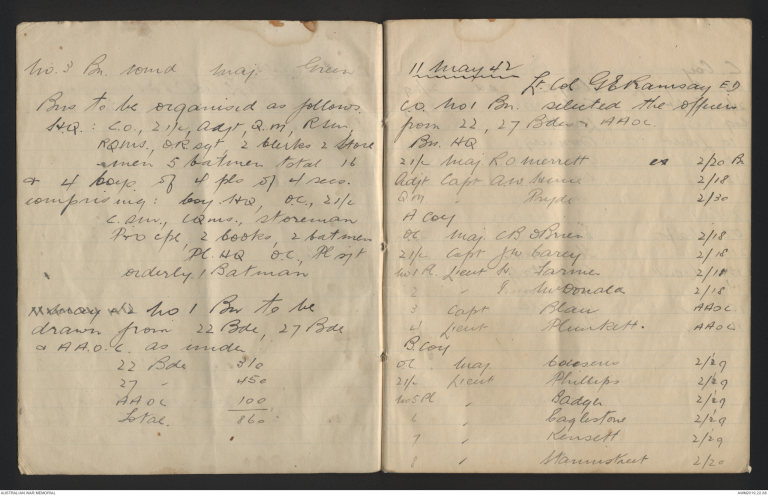 No. 3 Bn. comd Maj Green
Bns to be organised as follows.
H.Q.: C.O., 2i/c, Adjt, Q.M, RSM,
RQMS, OR sgt, 2 clerks 2 store
men 5 batmen total 16
& 4 coys. of 4 pls of 4 secs.
comprising: Coy HQ, OC, 2i/c
C.S.M., CQMS., Storeman
Pro cpl, 2 cooks, 2 batmen
Pl. HQ OC, Pl sgt
orderly 1 Batman
No 1 Bn to be
drawn from 22 Bde, 27 Bde
& A.A.O.C. as under
22 Bde 310
27 " 450
AAOC 100
Total 860
11 May 42
Lt Col G E Ramsay ED
C.O. No 1 Bn. selected the officers
from 22, 27 Bdes & AAOC
Bn. HQ
2i/c Maj R O Merrett ex 2/20 Bn
Adjt Capt A W 2/18
Q M " Pryde 2/30
A Coy
OC Maj C B O'Brien 2/18
2i/c Capt J W Carey 2/18
No 1 Pl. Lieut H. Farmer
2 " McDonald 2/18
3 Capt Blau AAOC
4 Lieut Plunkett. AAOC
B. Coy
OC Maj 2/29
2i/c Lieut Phillips 2/29
No 5 Pl " Badger 2/29
6 " Eaglestone 2/29
7 " Kensett 2/29
8 " 2/20
AUSTRALIAN WAR MEMORIAL
AWM2019.22.68